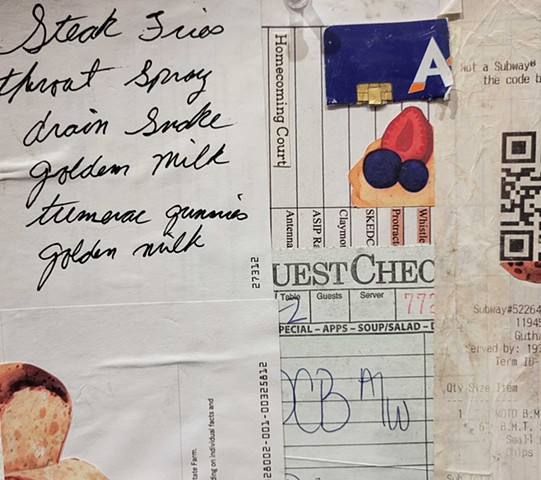 Steak Fries
throat Spray
drain Snake
golden milk
tumerac gunnies
golden milk
27312
26002-001-00325812
ding on individual facts and
tate Farm.
Homecoming Court
Antenna
ASIP Ra
Claymo
SKEDC
Protract
Whistle
A
UEST CHEC
Table
Guests
Server
2
772
PECIAL – APPS – SOUP/SALAD –
CB MW
Not a Subway®
the code b
Subway#52264
1194
Guth
erved by: 19
Term ID-
Qty Size Item
1
6" B.M.T.
Small
Chips